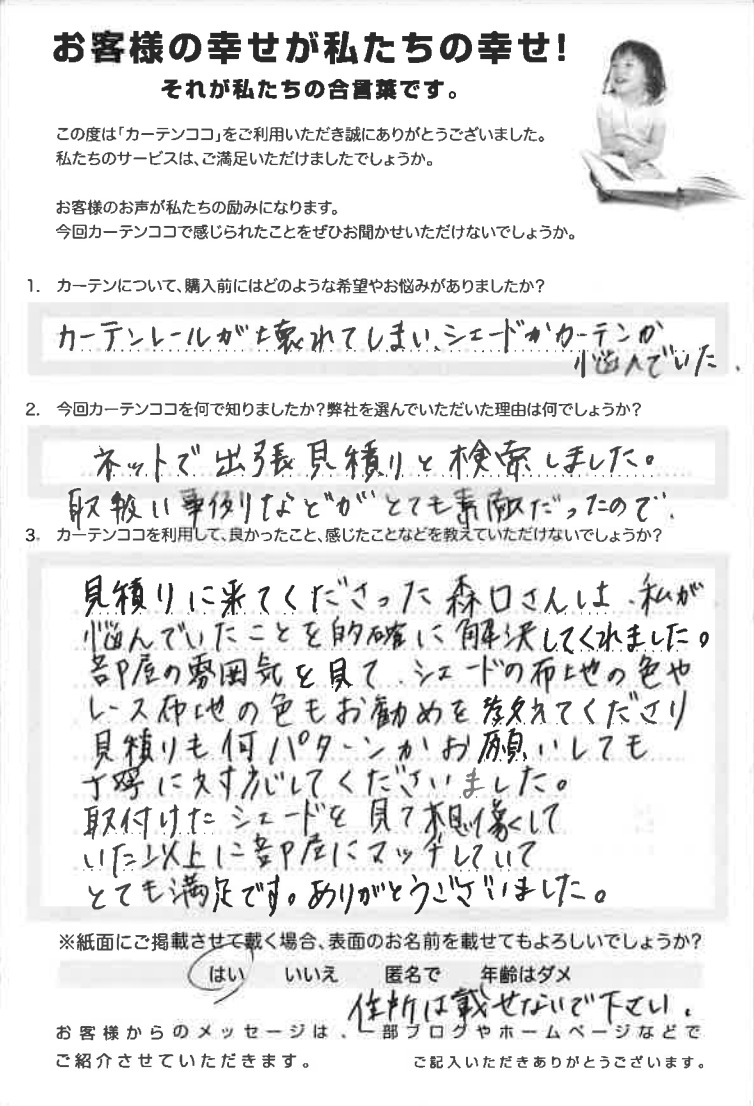 お客様の幸せが私たちの幸せ！
それが私たちの合言葉です。
この度は「カーテンココ」をご利用いただき誠にありがとうございました。
私たちのサービスは、ご満足いただけましたでしょうか。
お客様のお声が私たちの励みになります。
今回カーテンココで感じられたことをぜひお聞かせいただけないでしょうか。
1. カーテンについて、購入前にはどのような希望やお悩みがありましたか？
カーテンレールが壊れてしまい、シェードかカーテンか
悩んでいた。
2. 今回カーテンココを何で知りましたか？弊社を選んでいただいた理由は何でしょうか？
ネットで出張見積りと検索しました。
取扱い事例などがとても素敵だったので、
3. カーテンココを利用して、良かったこと、感じたことなどを教えていただけないでしょうか？
見積りに来てくださった森口さんは、私が
悩んでいたことを的確に解決してくれました。
部屋の雰囲気を見て、シェードの布地の色や
レース布地の色もお勧めを教えてくださり
見積りも何パターンかお願いしても
丁寧に対応してくださいました。
取付けたシェードを見て想像して
いた以上に部屋にマッチしていて
とても満足です。ありがとうございました。
※紙面にご掲載させて戴く場合、表面のお名前を載せてもよろしいでしょうか？
はい いいえ 匿名で 年齢はダメ
住所は載せないで下さい。
お客様からのメッセージは、一部ブログやホームページなどで
ご紹介させていただきます。 ご記入いただきありがとうございます。